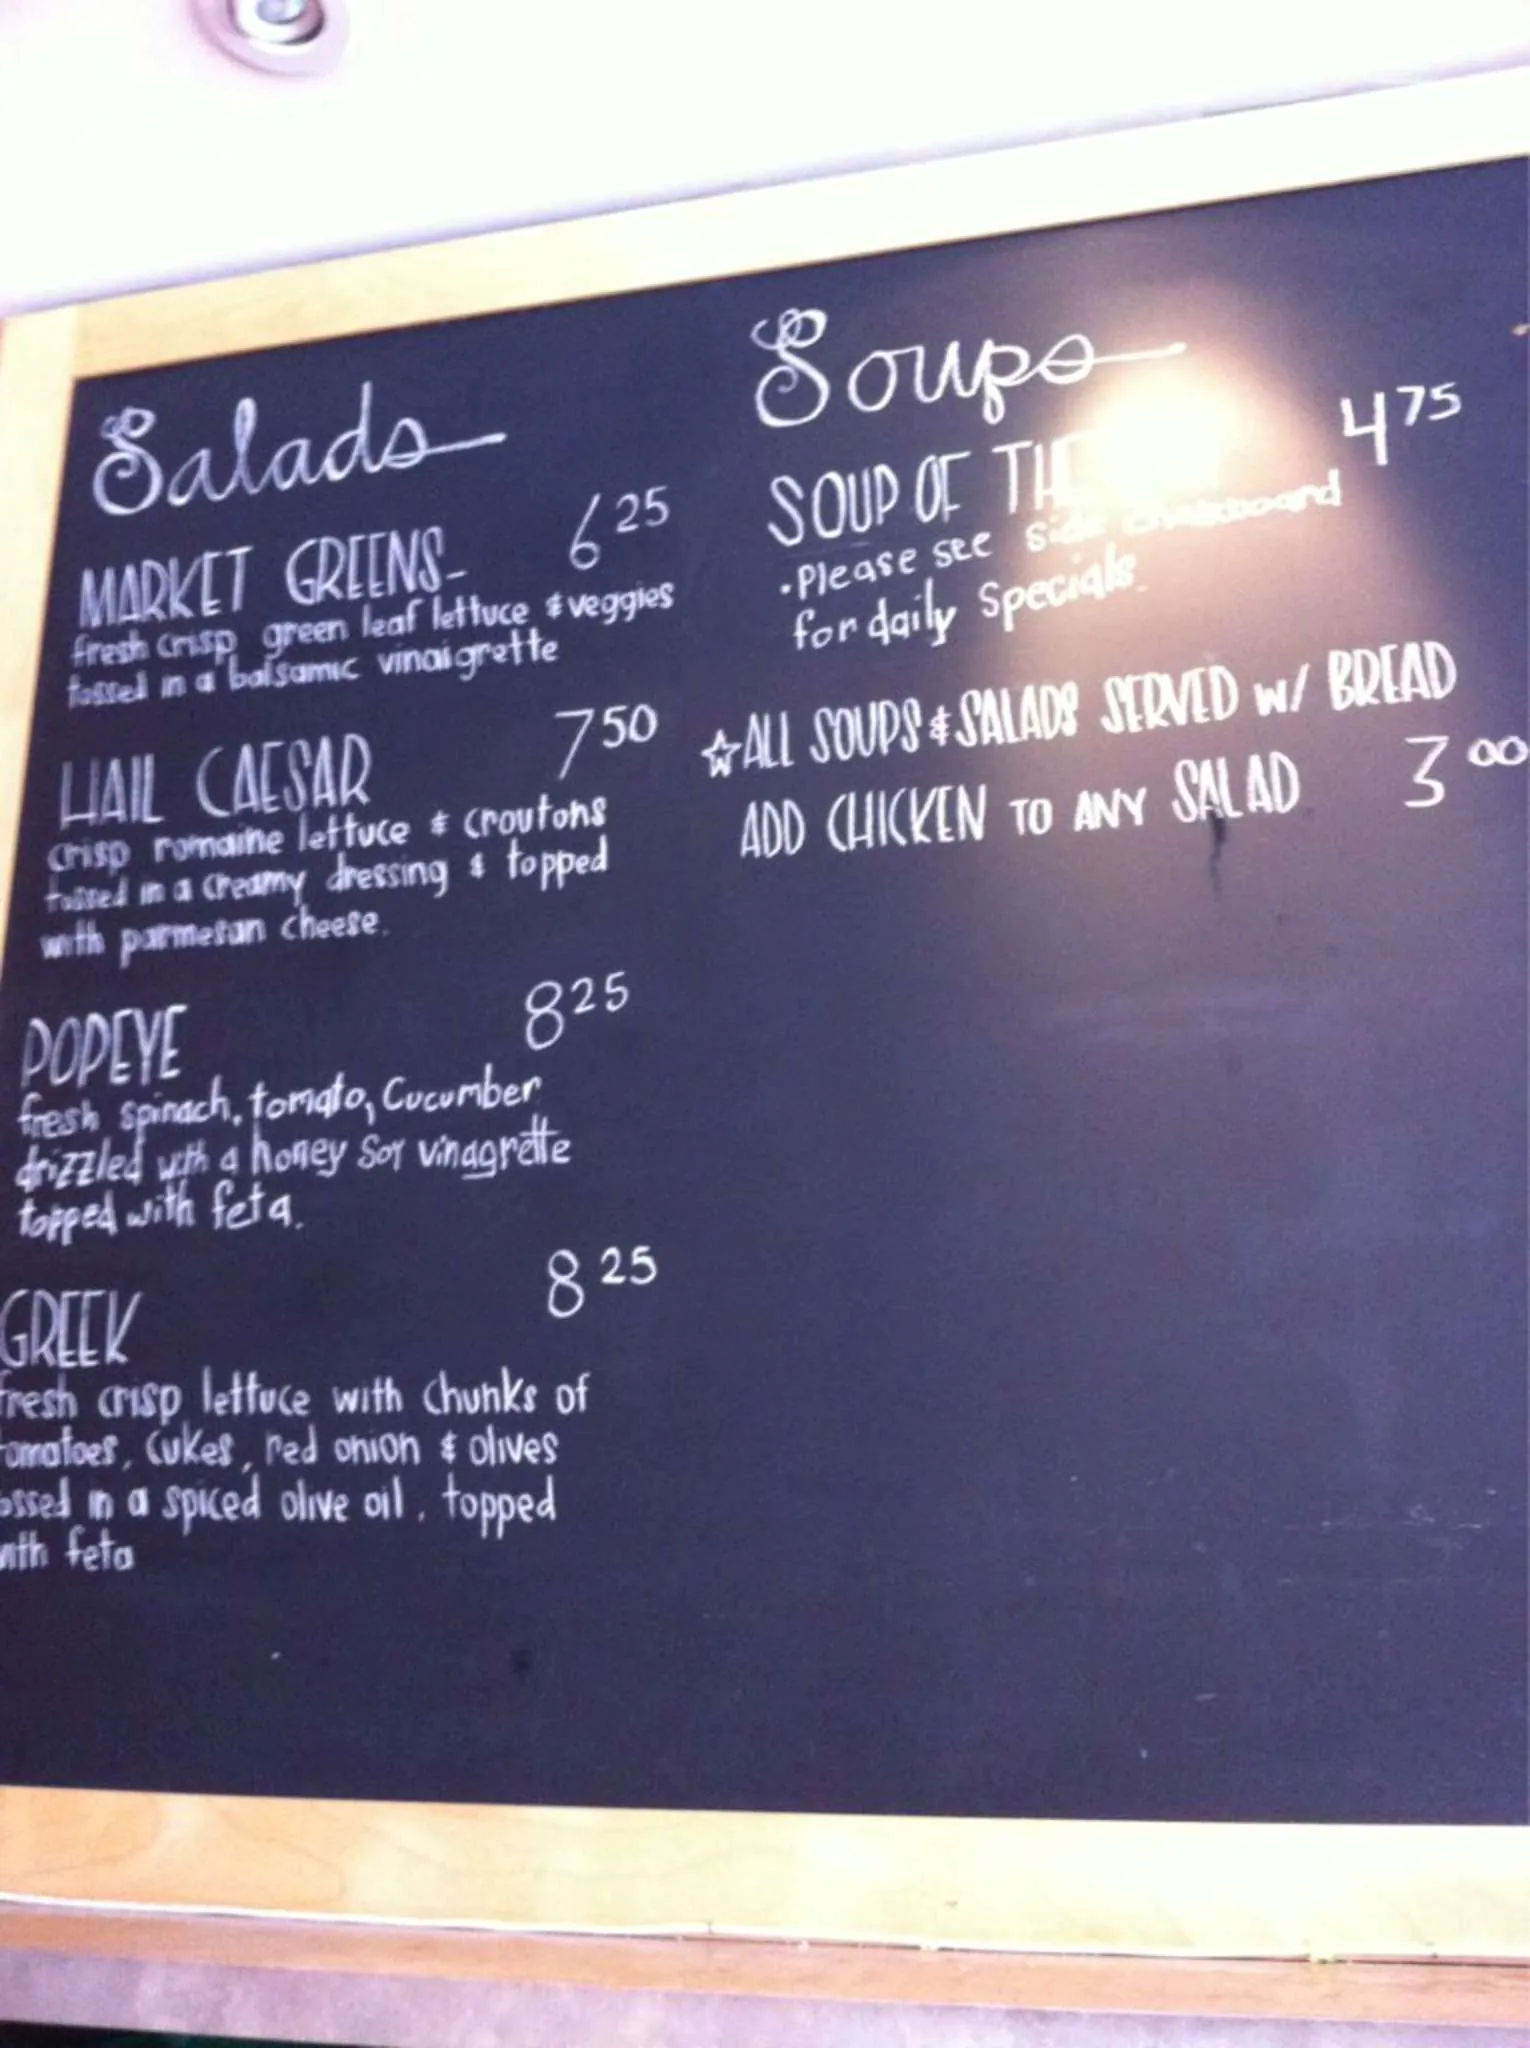 Salads
MARKET GREENS- 6 25
fresh crisp green leaf lettuce & veggies
tossed in a balsamic vinaigrette
HAIL CAESAR 7 50
crisp romaine lettuce & croutons
tossed in a creamy dressing & topped
with parmesan cheese.
POPEYE 8 25
fresh spinach, tomato, Cucumber
drizzled with a honey soy vinagrette
topped with feta.
GREEK 8 25
fresh crisp lettuce with chunks of
tomatoes, cukes, red onion & olives
tossed in a spiced olive oil, topped
with feta
Soups
SOUP OF THE 4 75
•Please see side chalkboard
for daily Specials.
☆ALL SOUPS & SALADS SERVED w/ BREAD
ADD CHICKEN TO ANY SALAD 3 00